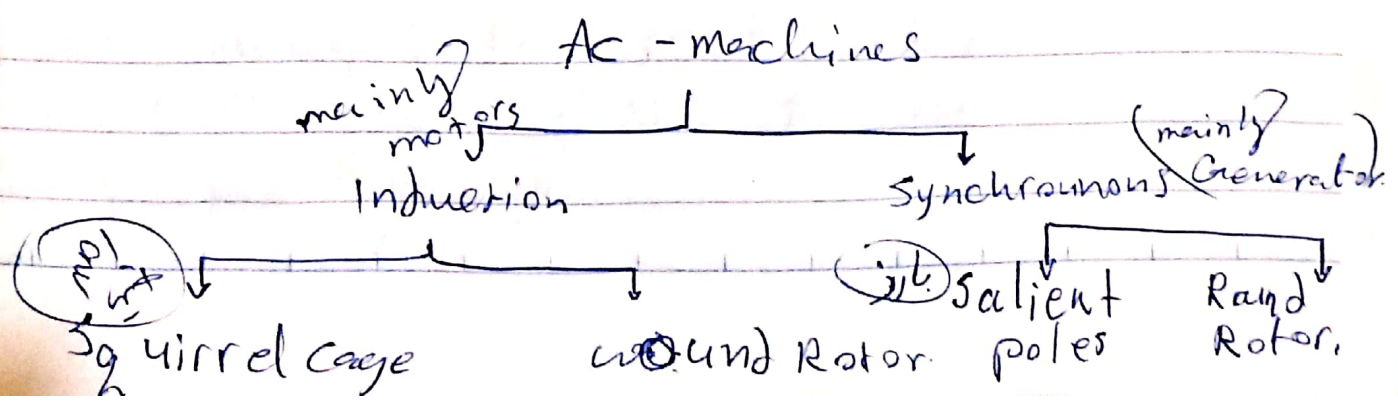 Ac - machines
mainly
motors
(mainly
Generator)
Induction
Synchrounons
Squirrel cage
wound Rotor.
بارز
Salient
poles
Raund
Rotor.